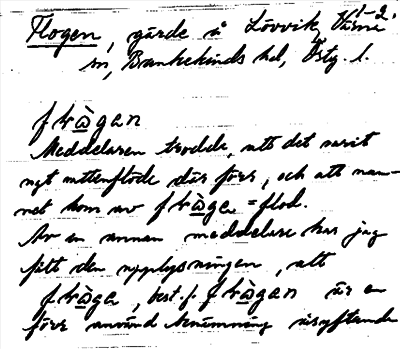 1-2.
Flogen, gärde i Lövvik, Värna
sn, Bankekinds hd, Östg. l.
flωgan
Meddelaren trodde, att det varit
ngt vattenflöde där förr, och att nam-
net kom av flωga = flod.
Av en annan meddelare har jag
fått den upplysningen, att
flωga, best. f. flωgan är en
förr använd benämning åsyftande